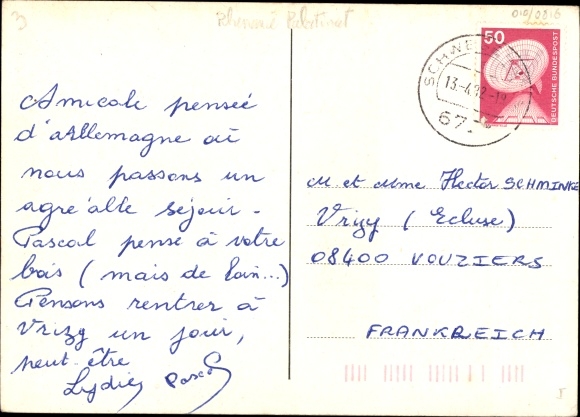 3
010/0216
Rhénanie Palatinat
50
DEUTSCHE BUNDESPOST
SCHWE
13.-4.82-19
67
Amicale pensée
d'Allemagne où
nous passons un
agréable séjour.
Pascal pense à votre
bois (mais de loin...)
Pensons rentrer à
Vrizy un jour,
peut-être
Lydie, Pascal
M et Mme Hector SCHMINKE
Vrizy (Ecluse)
08400 VOUZIERS
FRANKREICH